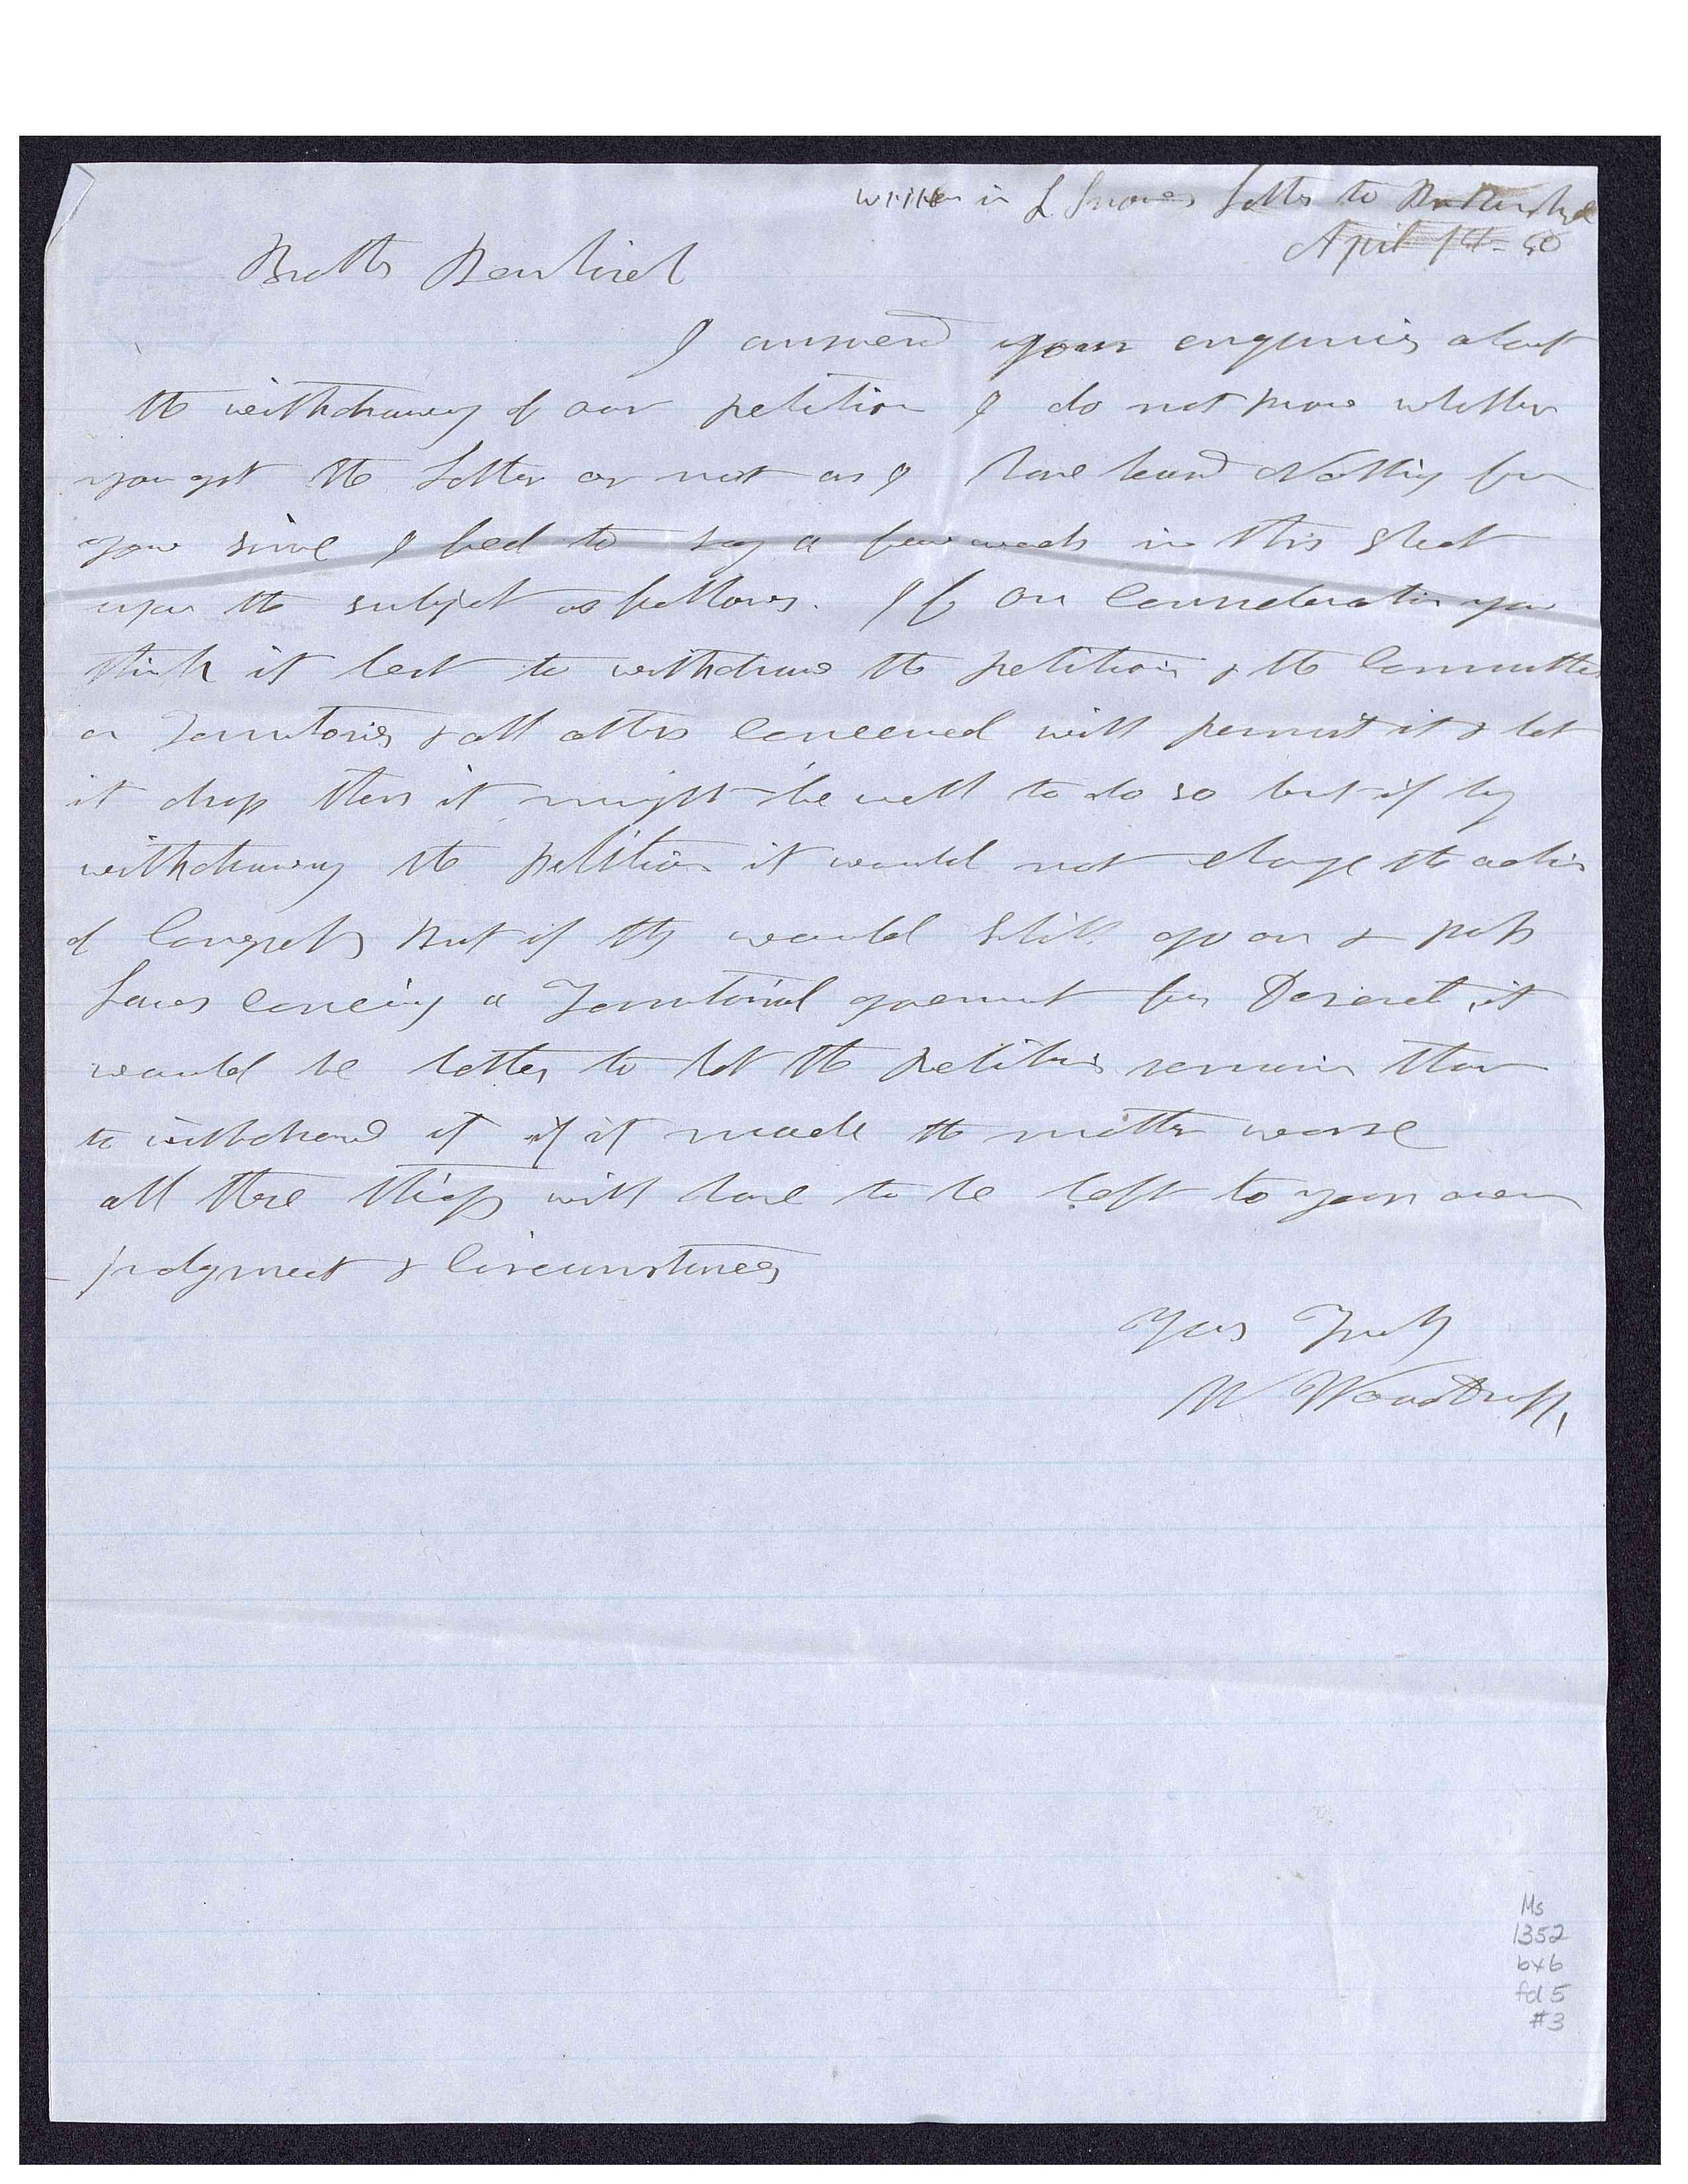 written in L Snows Letter to Dr Bernhisel
April 14 - 50
Brother Bernhisel
I answerd your enquiries about
the withdrawing of our petition I do not know whether
you got the Letter or not as I have heard Nothing from
you since I feel to say a few words in this sheet
upon the subject as follows. If on Consideration you
think it best to withdraw the petition & the Committee
on Territories & all others Concerned will permit it & let
it drop then it might be well to do so but if by
withdrawing the petition it would not change the action
of Congress But if they would still go on & pass
Laws concering a Territorial goverment for Deseret, it
would be better to let the petition remain than
to withdraw it if it made the matter worse
all these things will have to be left to your own
judgment & Circumstances
Yours Truly
W Woodruff,
Ms
1352
bx6
fd 5
#3